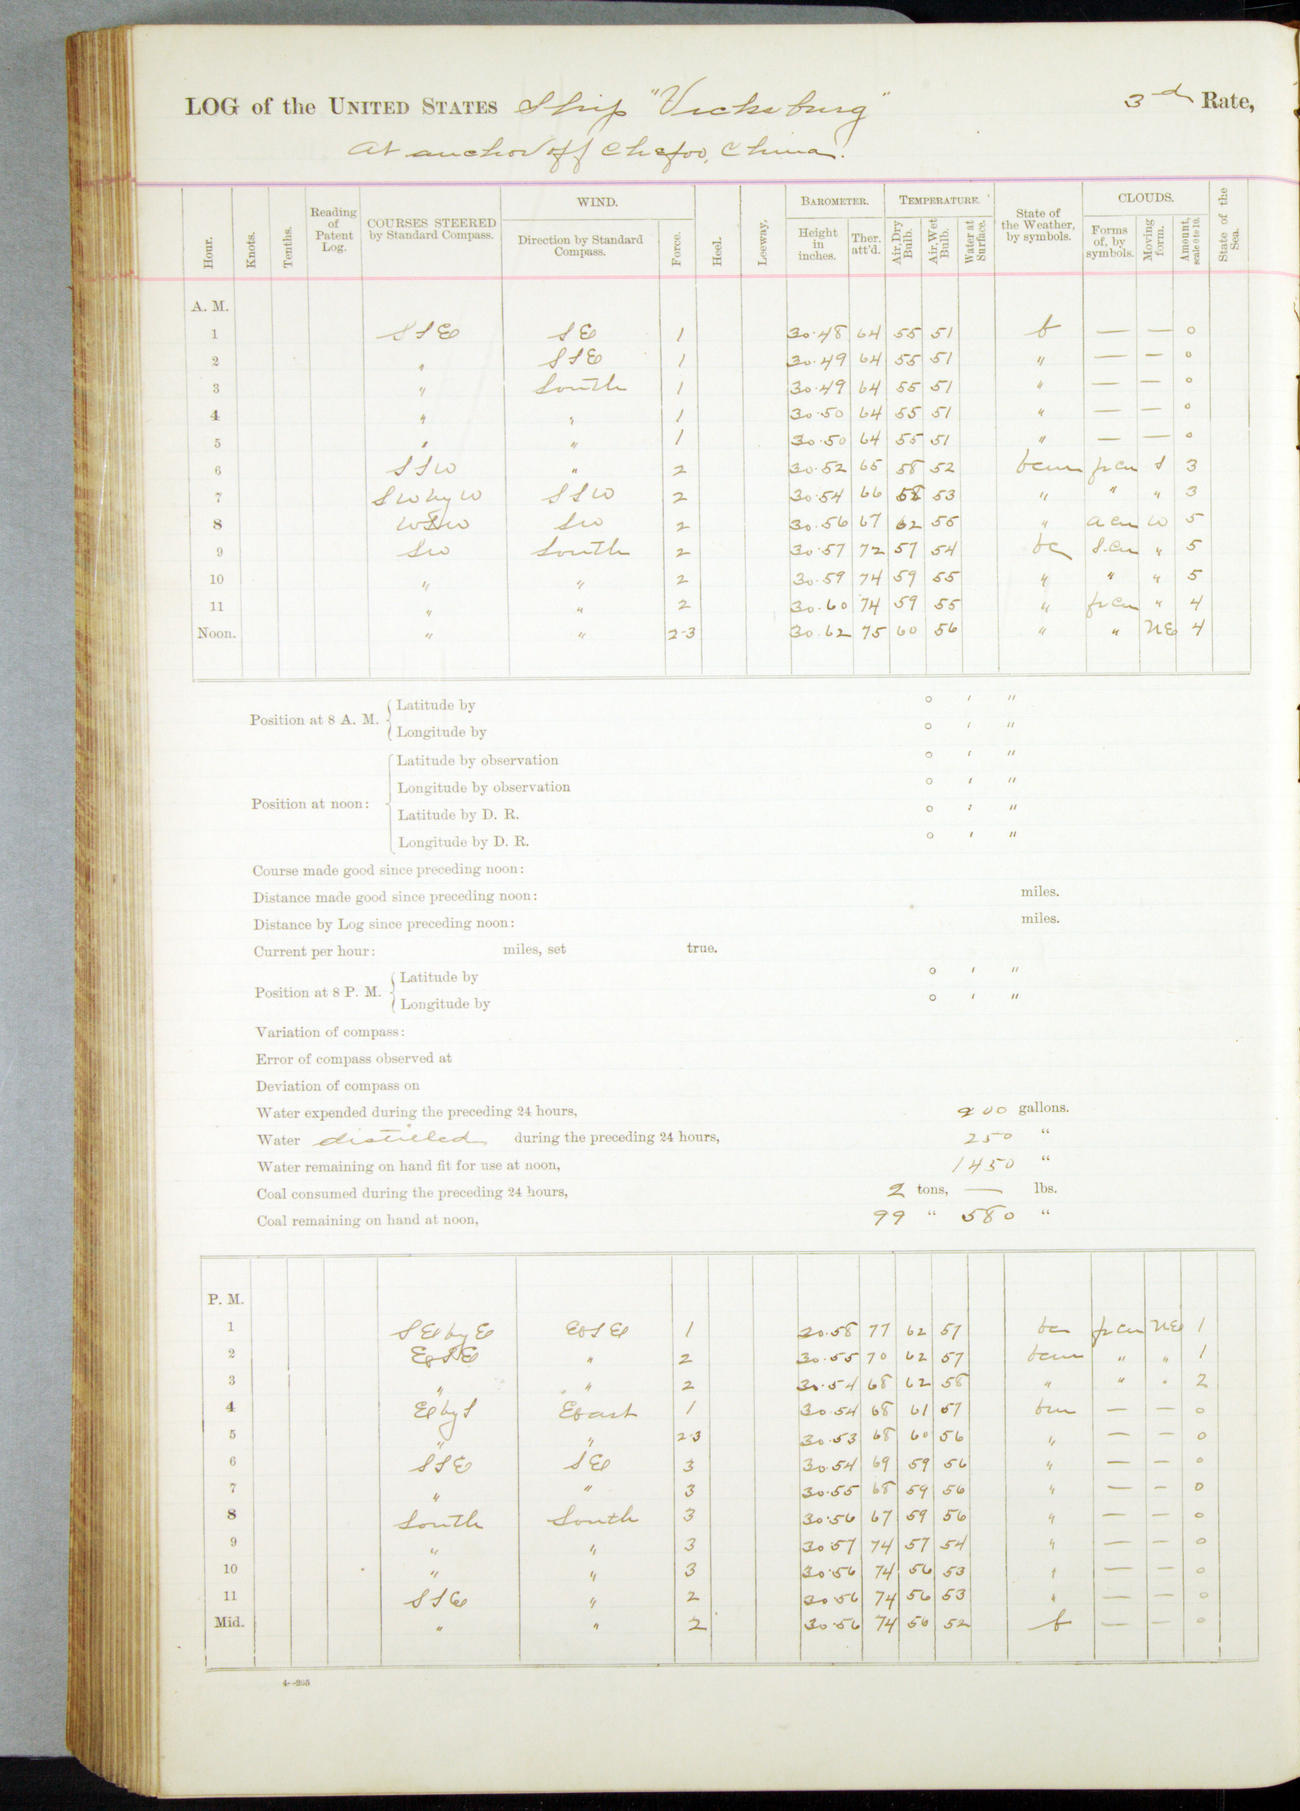 LOG of the UNITED STATES Ship "Vicksburg" 3rd Rate,
At anchor off Chefoo, China.
Hour. Knots. Tenths. Reading of Patent Log. COURSES STEERED by Standard Compass. WIND. Direction by Standard Compass. Force. Heel. Leeway. BAROMETER. Height in inches. Ther. att'd. TEMPERATURE. Air, Dry Bulb. Air, Wet Bulb. Water at Surface. State of the Weather, by symbols. CLOUDS. Forms of, by symbols. Moving form. Amount, scale 0 to 10. State of the Sea.
A. M.
1 SSE SE 1 30.48 64 55 51 b — — 0
2 " SSE 1 30.49 64 55 51 " — — 0
3 " South 1 30.49 64 55 51 " — — 0
4 " " 1 30.50 64 55 51 " — — 0
5 " " 1 30.50 64 55 51 " — — 0
6 SSW " 2 30.52 65 58 52 bcm fr cu S 3
7 SW by W SSW 2 30.54 66 58 53 " " " 3
8 WSW SW 2 30.56 67 62 55 " a cu W 5
9 SW South 2 30.57 72 57 54 bc S.cu " 5
10 " " 2 30.59 74 59 55 " " " 5
11 " " 2 30.60 74 59 55 " fr cu " 4
Noon. " " 2-3 30.62 75 60 56 " " NE 4
Position at 8 A. M. Latitude by ° ' "
Longitude by ° ' "
Position at noon: Latitude by observation ° ' "
Longitude by observation ° ' "
Latitude by D. R. ° ' "
Longitude by D. R. ° ' "
Course made good since preceding noon:
Distance made good since preceding noon: miles.
Distance by Log since preceding noon: miles.
Current per hour: miles, set true.
Position at 8 P. M. Latitude by ° ' "
Longitude by ° ' "
Variation of compass:
Error of compass observed at
Deviation of compass on
Water expended during the preceding 24 hours, gallons.
Water distilled during the preceding 24 hours, 250 "
Water remaining on hand fit for use at noon, 1450 "
Coal consumed during the preceding 24 hours, 2 tons, — lbs.
Coal remaining on hand at noon, 99 " 580 "
P. M.
1 SE by E ESE 1 30.58 77 62 57 bc fr cu NE 1
2 ESE " 2 30.55 70 62 57 bcm " " 1
3 " " 2 30.54 68 62 58 " " " 2
4 E by S East 1 30.54 68 61 57 bm — — 0
5 " " 2-3 30.53 68 60 56 " — — 0
6 SSE SE 3 30.54 69 59 56 " — — 0
7 " " 3 30.55 68 59 56 " — — 0
8 South South 3 30.56 67 59 56 " — — 0
9 " " 3 30.57 74 57 54 " — — 0
10 " " 3 30.56 74 56 53 " — — 0
11 SSE " 2 30.56 74 56 53 " — — 0
Mid. " " 2 30.56 74 56 52 b — — 0
4--205